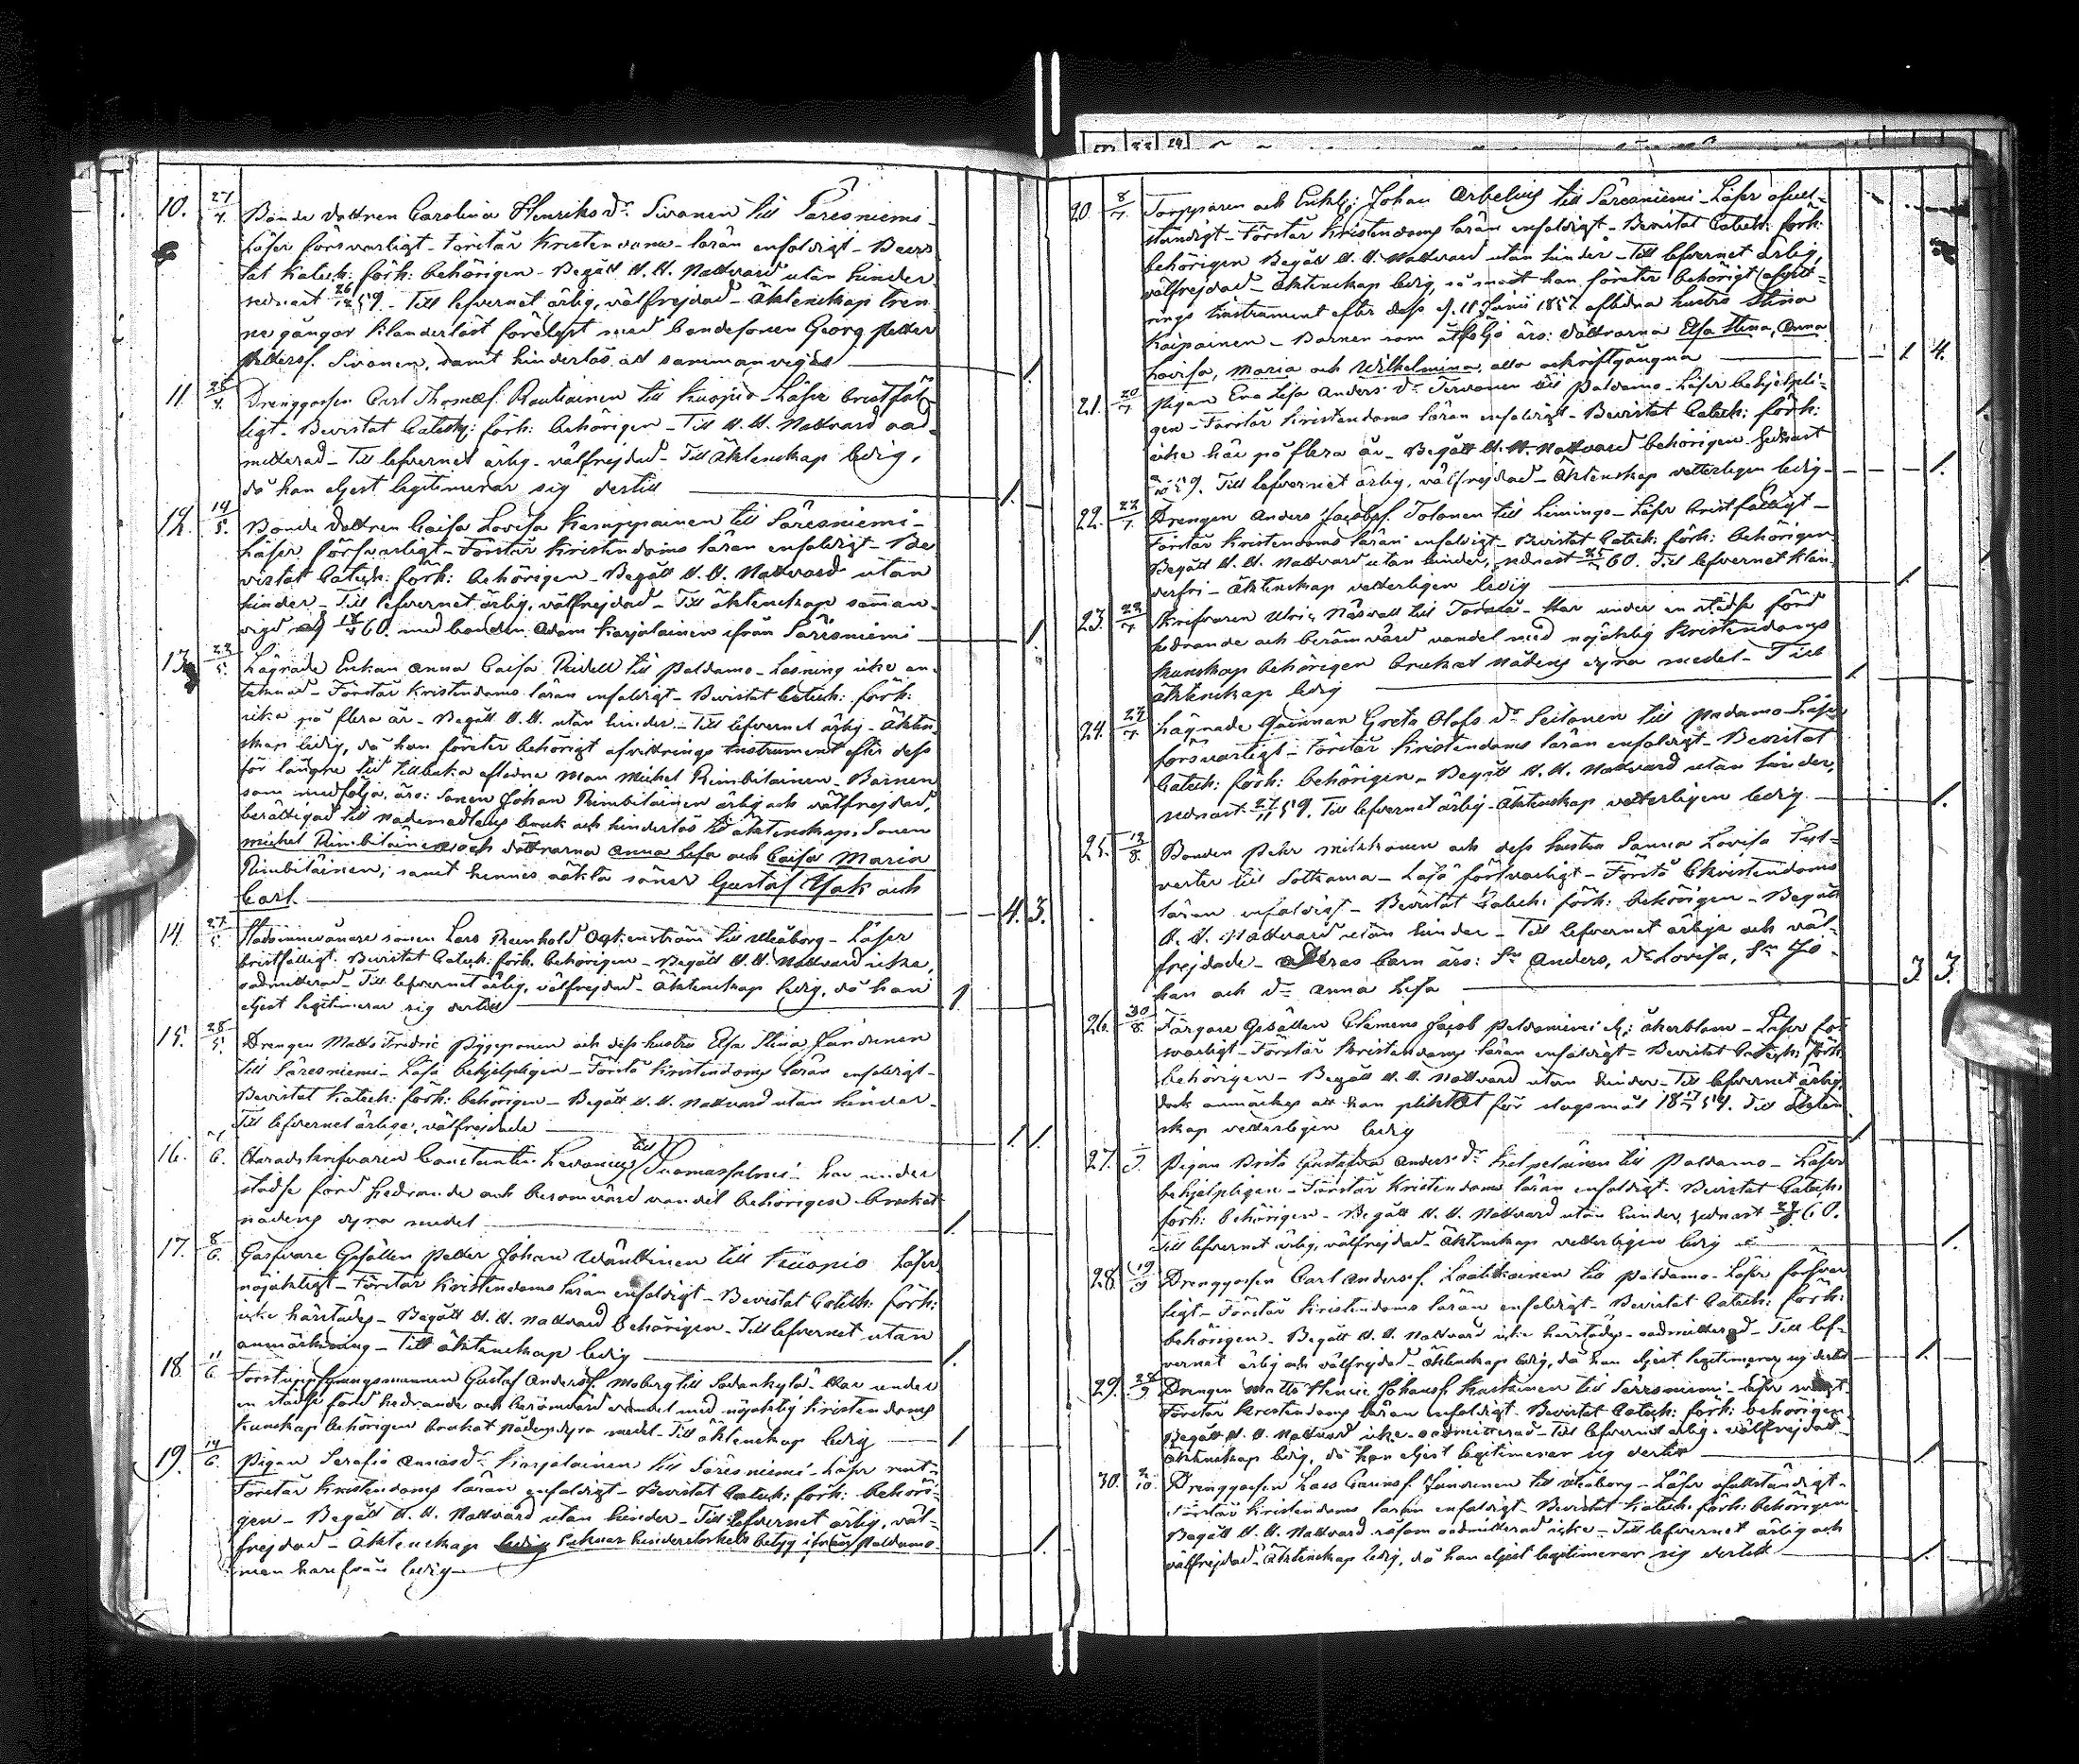 10. 27/4. Bonde dottren Carolina Henriksdr Sivonen till Säresniemi -
Läser försvarligt - Förstår Kristendoms läran enfaldigt - Bevis
tat Katech: förh: behörigen - Begått H. H. Nattvard utan hinder
sednast 26/12 59. Till lefvernet ärlig, välfrejdad - Äktenskap tren
ne gångor klanderlöst förelyst med bondesonen Georg Petter
Petterss. Sivonen, samt hinderlös att sammanvigas 1.
11. 28/4. Drenggossen Carl Thomass. Rautiainen till Kuopio - Läser bristfäl-
ligt - Bevistat Catech: förh: behörigen - Till H. H. Nattvard oad-
mitterad - Till lefvernet ärlig - välfrejdad - Till Äktenskap ledig,
då han eljest legitimerar sig dertill 1.
12. 14/5. Bonde dottren Caisa Lovisa Karppainen till Säresniemi -
Läser försvarligt - Förstår Kristendoms läran enfaldigt - Be
vistat Catech: förh: behörigen - Begått H. H. Nattvard utan
hinder - Till lefvernet ärlig, välfrejdad - Till äktenskap samman-
vigd 60. med bonden Adam Karjalainen ifrån Säresniemi 1
13. 23/5. Lägrade Enkan Anna Caisa Ridell till Paldamo - Läsning icke an-
tecknad - Förstår Kristendoms läran enfaldigt - Bevistat Catech: förh:
icke på flera år - Begått H. H. utan hinder - Till lefvernet ärlig - Äkten-
skap ledig, då hon företer behörigt afvittrings Instrument efter dess
för längre tid tillbaka aflidne man Michel Rimbiläinen - Barnen
som medfölja, äro: Sonen Johan Rimbiläinen ärlig och välfrejdad,
berättigad till nådemedlens bruk och hinderlös till äktenskap, Sonen
Michel Rimbiläinen och döttrarna Anna Lisa och Caisa Maria
Rimbiläinen; samt hennes oäkta söner Gustaf Isak och
Carl. 4. 3.
14. 27/5. Stadsinnevånare sonen Lars Reinhold till Uleåborg - Läser
bristfälligt. Bevistat Catech: förh. behörigen - Begått H. H. Nattvard icke,
oadmitterad - Till lefvernet ärlig, välfrejdad - Äktenskap ledig, då han
eljest legitimerar sig dertill 1
15. 28/5. Drengen Matts Fredric Pyypponen och dess hustru Elsa Stina Jundunen
till Säresniemi - Läsa behjelpligen - Förstå Kristendoms läran enfaldigt -
Bevistat Katech: förh: behörigen - Begått H. H. Nattvard utan hinder -
Till lefvernet ärliga, välfrejdade 1. 1.
16. 6. Häradskrifvaren Constantin Levonius till Suomussalmi - har under
städse förd hedrande och berömvärd vandel behörigen brukat
nådens dyra medel 1.
17. 8/6. Garfvare Gesällen Petter Johan Wänttinen till Kuopio Läser
nöjaktigt - Förstår Kristendoms läran enfaldigt - Bevistat Catech: förh:
icke härstädes - Begått H. H. Nattvard behörigen - Till lefvernet utan
anmärkning - Till äktenskap ledig 1.
18. 11/6. Forstuppsyningsmannen Gustaf Anderss. Moberg till Sodankylä - Har under
en städse förd hedrande och berömvärd vandel med nöjaktig Kristendoms
kunskap behörigen brukat Nådens dyra medel - Till äktenskap ledig 1
19. 14/6. Pigan Serafia Annasdr Karjalainen till Säresniemi - Läser rent
Förstår Kristendoms läran enfaldigt - Bevistat Catech: förh: behöri-
gen - Begått H. H. Nattvard utan hinder - Till lefvernet ärlig, väl-
frejdad - Äktenskap ledig Saknar hinderslöshets betyg ifrån Paldamo 1.
men härifrån ledig -
20. 8/7. Torpparen och Enkl: Johan Arbelius till Säresniemi - Läser ofull-
ständigt - Förstår Kristendoms läran enfaldigt - Bevistat Catech: förh:
behörigen Begått H. H. Nattvard utan hinder - Till lefvernet ärlig,
välfrejdad - Äktenskap ledig, så snart han företer behörigt afvitt-
rings Instrument efter dess d. 11 Junii 1857 aflidna hustru Stina
Kaipainen - Barnen som åtfölja äro: döttrarna Elsa Stina, Anna
Lovisa, Maria och Wilhelmina, alla oskriftgångna 1 4.
21. 20/7 Pigan Eva Lisa Andersdr Tervonen till Paldamo - Läser behjelpli-
gen - Förstår Kristendoms läran enfaldigt - Bevistat Catech: förh:
icke här på flera år - Begått H. H. Nattvard behörigen sednast
59. Till lefvernet ärlig, välfrejdad - Äktenskap vetterligen ledig 1.
22. 22/7. Drengen Anders Jacobss. Tolonen till Limingo - Läser bristfälligt -
Förstår Kristendoms läran enfaldigt - Bevistat Catech: förh: behörigen
Begått H. H. Nattvard utan hinder, sednast 60. Till lefvernet klan-
derfri - Äktenskap vetterligen ledig 1.
23. 22/7 Skrifvaren Ulric Näsvall till Torneå - Har under en städse förd
hedrande och berömvärd vandel med nöjaktig Kristendoms
kunskap behörigen brukat Nådens dyra medel - Till
äktenskap ledig 1.
24. 22/7 Lägrade Qvinnan Greta Olofsdr Leinonen till Paldamo - Läser
försvarligt - Förstår Kristendoms läran enfaldigt - Bevistat
Catech: förh: behörigen - Begått H. H. Nattvard utan hinder,
sednast 27/11 59. Till lefvernet ärlig - Äktenskap vetterligen ledig 1.
25. 13/8. Bonden Pehr Mikkonen och dess hustru Sanna Lovisa
till Sotkamo - Läsa försvarligt - Förstå Christendoms
läran enfaldigt - Bevistat Catech: förh: behörigen - Begått
H. H. Nattvard utan hinder - Till lefvernet ärliga och väl-
frejdade - Deras barn äro: Sn Anders, dr Lovisa, Sn Jo-
han och dr Anna Lisa 3 3.
26. 30/8. Färgare Gesällen Clemens Jacob Paldanius eller: Åkerblom - Läser för
svarligt - Förstår Kristendoms läran enfaldigt - Bevistat Catech: förh:
behörigen - Begått H. H. Nattvard utan hinder - Till lefvernet ärlig,
dock anmärkes att han pliktat för slagsmål 1854. Till äkten
skap vetterligen ledig 1
27. 9. Pigan Brita Gustafva Andersdr Kilpeläinen till Paldamo - Läser
behjelpligen - Förstår Kristendoms läran enfaldigt. Bevistat Catech:
förh: behörigen - Begått H. H. Nattvard utan hinder, sednast 60.
Till lefvernet ärlig, välfrejdad - Äktenskap vetterligen ledig 1.
28. 19/9 Drenggossen Carl Anderss. Laatikainen till Paldamo - Läser försvar
ligt - Förstår Kristendoms läran enfaldigt - Bevistat Catech: förh:
behörigen - Begått H. H. Nattvard icke härstädes - oadmitterad - Till lef-
vernet ärlig och välfrejdad - Äktenskap ledig, då han eljest legitimerar sig dertill 1.
29. 28/9 Drengen Matts Henric Johanss. Karhinen till Säresniemi - Läser svagt
Förstår Kristendoms läran enfaldigt - Bevistat Catech: förh: behörigen
Begått H. H. Nattvard icke - oadmitterad - Till lefvernet ärlig - välfrejdad -
Äktenskap ledig, då han eljest legitimerar sig dertill 1
30. 2/10. Drenggossen Lars Carinss. Jundunen till Uleåborg - Läser ofullständigt -
Förstår Kristendoms läran enfaldigt - Bevistat Katech: förh: behörigen
Begått H. H. Nattvard såsom oadmitterad icke - Till lefvernet ärlig och
välfrejdad - Äktenskap ledig, då han eljest legitimerar sig dertill 1.